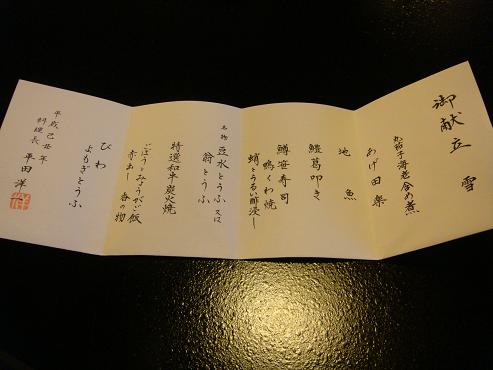 御献立　雪
丸茄子海老含め煮
あげ田楽
地魚
鱧葛叩き
鱒笹寿司
鴨くわ焼
蛸とうるい酢浸し
名物　豆水とうふ又は
翁とうふ
特選和牛炭火焼
ごぼうとみょうがご飯
赤出し　香の物
びわ
よもぎとうふ
平成己丑年
料理長　平田洋